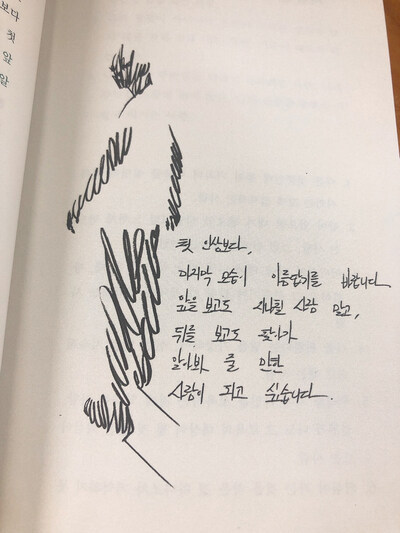 보다
첫
앞
알
첫 인상보다,
마지막 모습이 아름답기를 바랍니다.
앞을 보고도 지나칠 사람 말고,
뒤를 보고도
알아봐 줄 만한
사람이 되고 싶습니다.